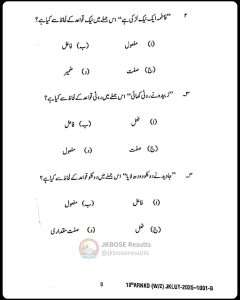 ۲ "فاطمہ ایک نیک لڑکی ہے" اس جملے میں نیک قواعد کے لحاظ سے کیا ہے؟
(ا) مفعول (ب) فاعل
(ج) صفت (د) ضمیر
۳۔ "زبیدہ نے روٹی کھائی" اس جملے میں روٹی قواعد کے لحاظ سے کیا ہے؟
(ا) فعل (ب) فاعل
(ج) صفت (د) مفعول
۴۔ "جاوید نے دو کلو دودھ لایا" اس جملے میں دو کلو قواعد کے لحاظ سے کیا ہے؟
(ا) مفعول (ب) فاعل
(ج) فعل (د) صفت مقداری
JKBOSE Results
@jkboseresults
3
10ᵗʰARNKD (W/Z) JKLUT-2025-1001-B